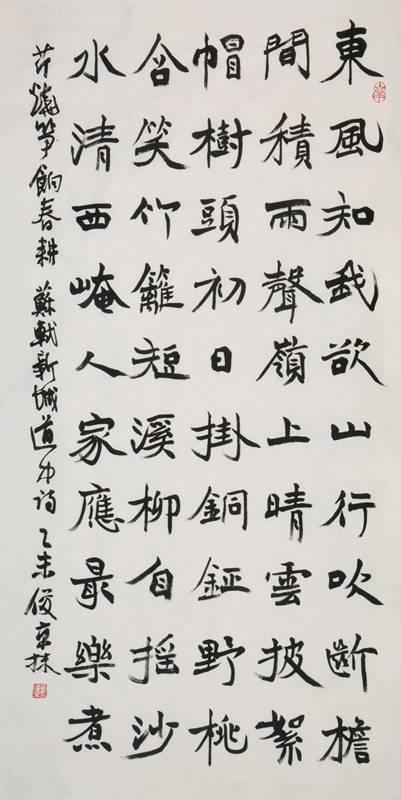 東風知我欲山行吹斷檐
間積雨聲嶺上晴雲披絮
帽樹頭初日掛銅鉦野桃
含笑竹籬短溪柳自搖沙
水清西崦人家應最樂煮
芹燒筍餉春耕 蘇軾新城道中詩 乙未俊京